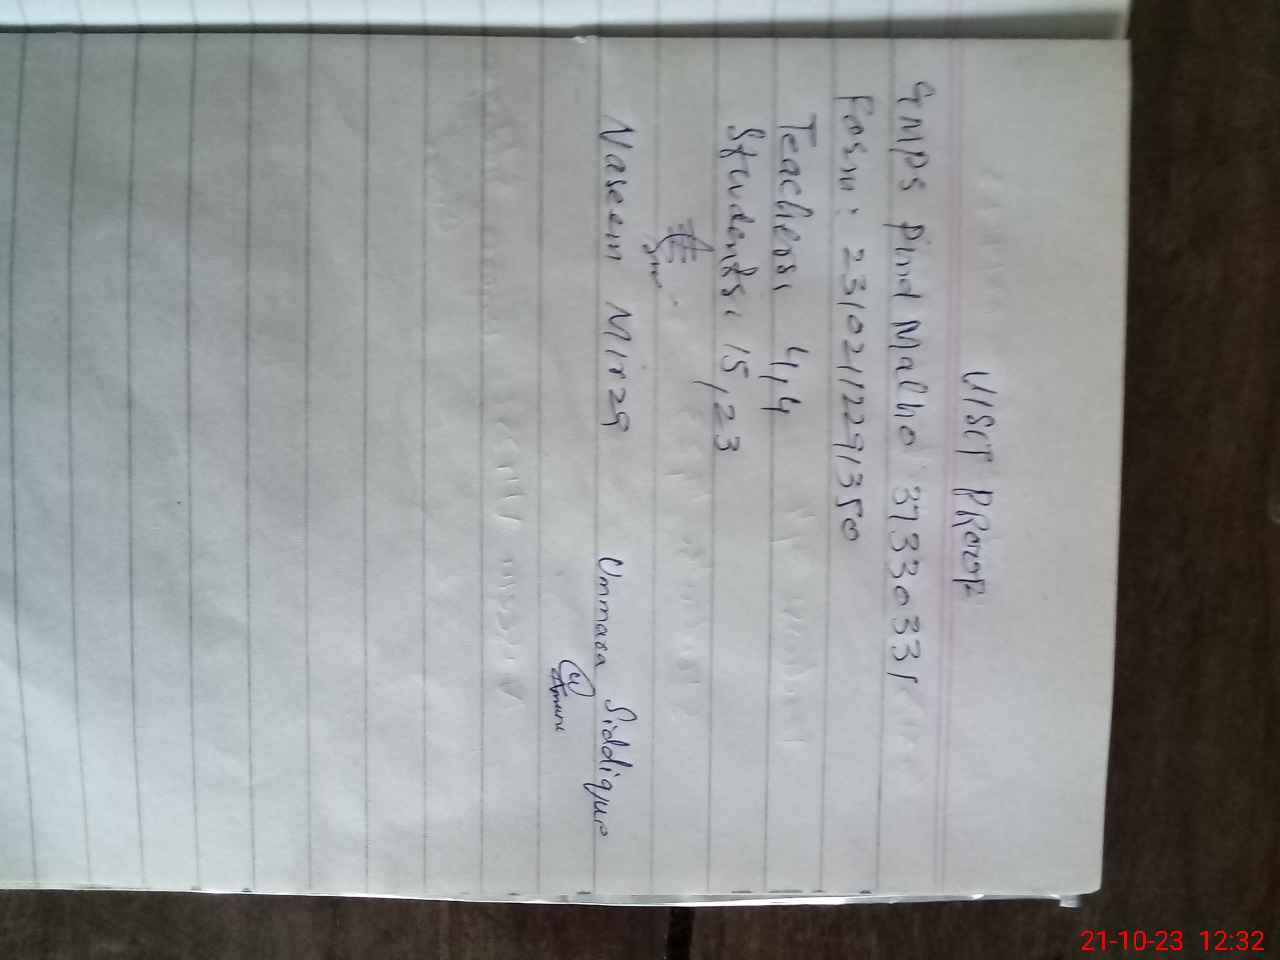 VISIT PROOF
GMPS Pind Malho 37330331
Form: 23102112291350
Teachers: 4,4
Students: 15,23
Naseem Mirza
Ummara Siddique
21-10-23 12:32